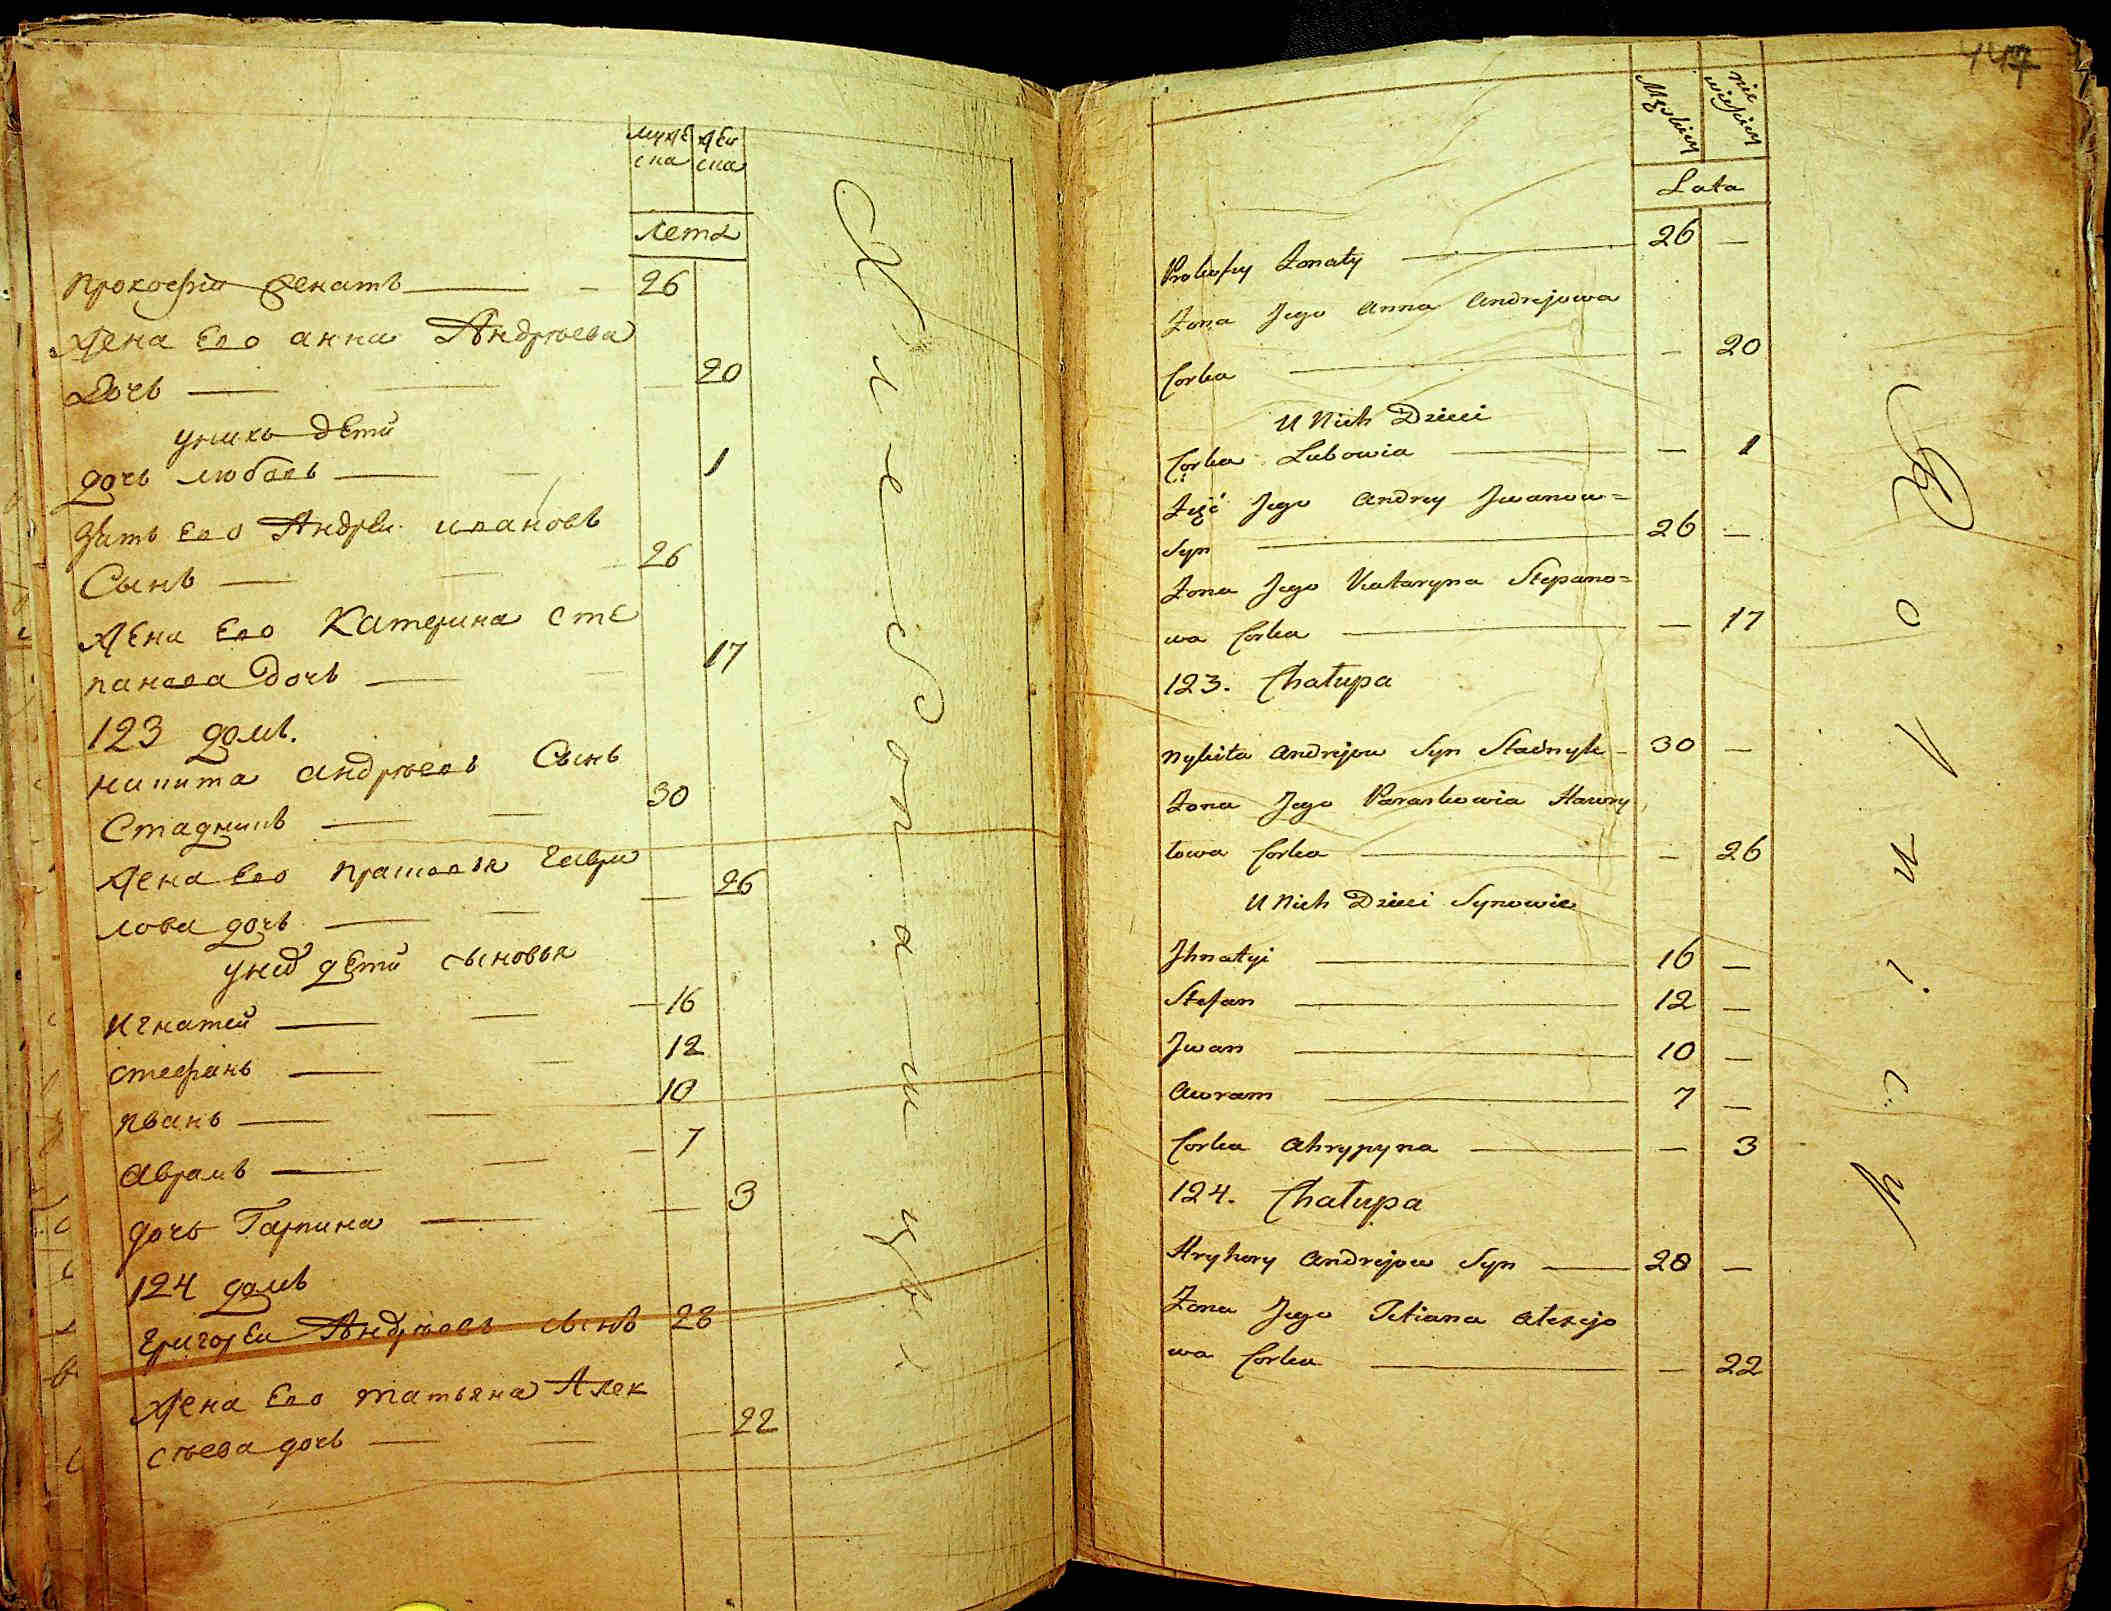 муже
ска
жен
ска
лета
Прокофiй женатъ 26
Жена Ево анна Андрѣева
Дочь 20
унихъ дети
дочь любовь 1
Зять Ево Андрей ивановъ
Сынъ 26
Жена Ево Катерина Сте
панова Дочь 17
123 домъ.
никита андрѣевъ Сынъ
Стадникъ 30
Жена Ево Прасковя Гаври
лова дочь 26
уних дети сыновья
игнатей 16
стефанъ 12
иванъ 10
аврамъ 7
дочь Гарпина 3
124 домъ
григорей Андрѣевъ сынъ 28
Жена Ево татьяна Алек
сѣева дочь 22
Хлебопашцы:
147
Męskiey
Niewieściey
Lata
Prokofiy Żonaty 26 —
Żona Jego Anna Andrejowa
Corka — 20
U Nich Dzieci
Corka Lubowia — 1
Zięć Jego Andrey Jwanow=
Syn 26 —
Żona Jego Kataryna Stepano=
wa Corka — 17
123. Chałupa
Nykita Andrejow Syn Stadnyk 30 —
Żona Jego Paraskowia Hawry
łowa Corka — 26
U Nich Dzieci Synowie
Jhnatyi 16 —
Stefan 12 —
Jwan 10 —
Awram 7 —
Corka Ahrypyna — 3
124. Chałupa
Hryhory Andrejow Syn 28 —
Żona Jego Tetiana Alexejo
wa Corka — 22
Rolnicy